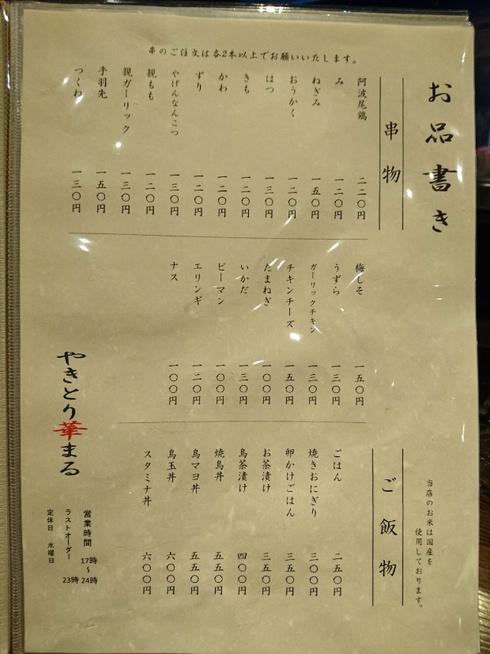 串のご注文は各2本以上でお願いいたします。
お品書き
串物
阿波尾鶏 二二〇円
み 一二〇円
ねぎみ 一五〇円
おうかく 一二〇円
はつ 一三〇円
きも 一二〇円
かわ 一二〇円
ずり 一二〇円
やげんなんこつ 一三〇円
親もも 一二〇円
親ガーリック 一三〇円
手羽先 一五〇円
つくね 一三〇円
梅しそ 一五〇円
うずら 一三〇円
ガーリックチキン 一三〇円
チキンチーズ 一五〇円
たまねぎ 一〇〇円
いかだ 一三〇円
ピーマン 一〇〇円
エリンギ 一二〇円
ナス 一〇〇円
ご飯物
当店のお米は国産を
使用しております。
ごはん 二五〇円
焼きおにぎり 三〇〇円
卵かけごはん 三五〇円
お茶漬け 三五〇円
鳥茶漬け 四〇〇円
焼鳥丼 五五〇円
鳥マヨ丼 五五〇円
鳥玉丼 六〇〇円
スタミナ丼 六〇〇円
やきとり華まる
営業時間 17時～24時
ラストオーダー 23時
定休日 水曜日